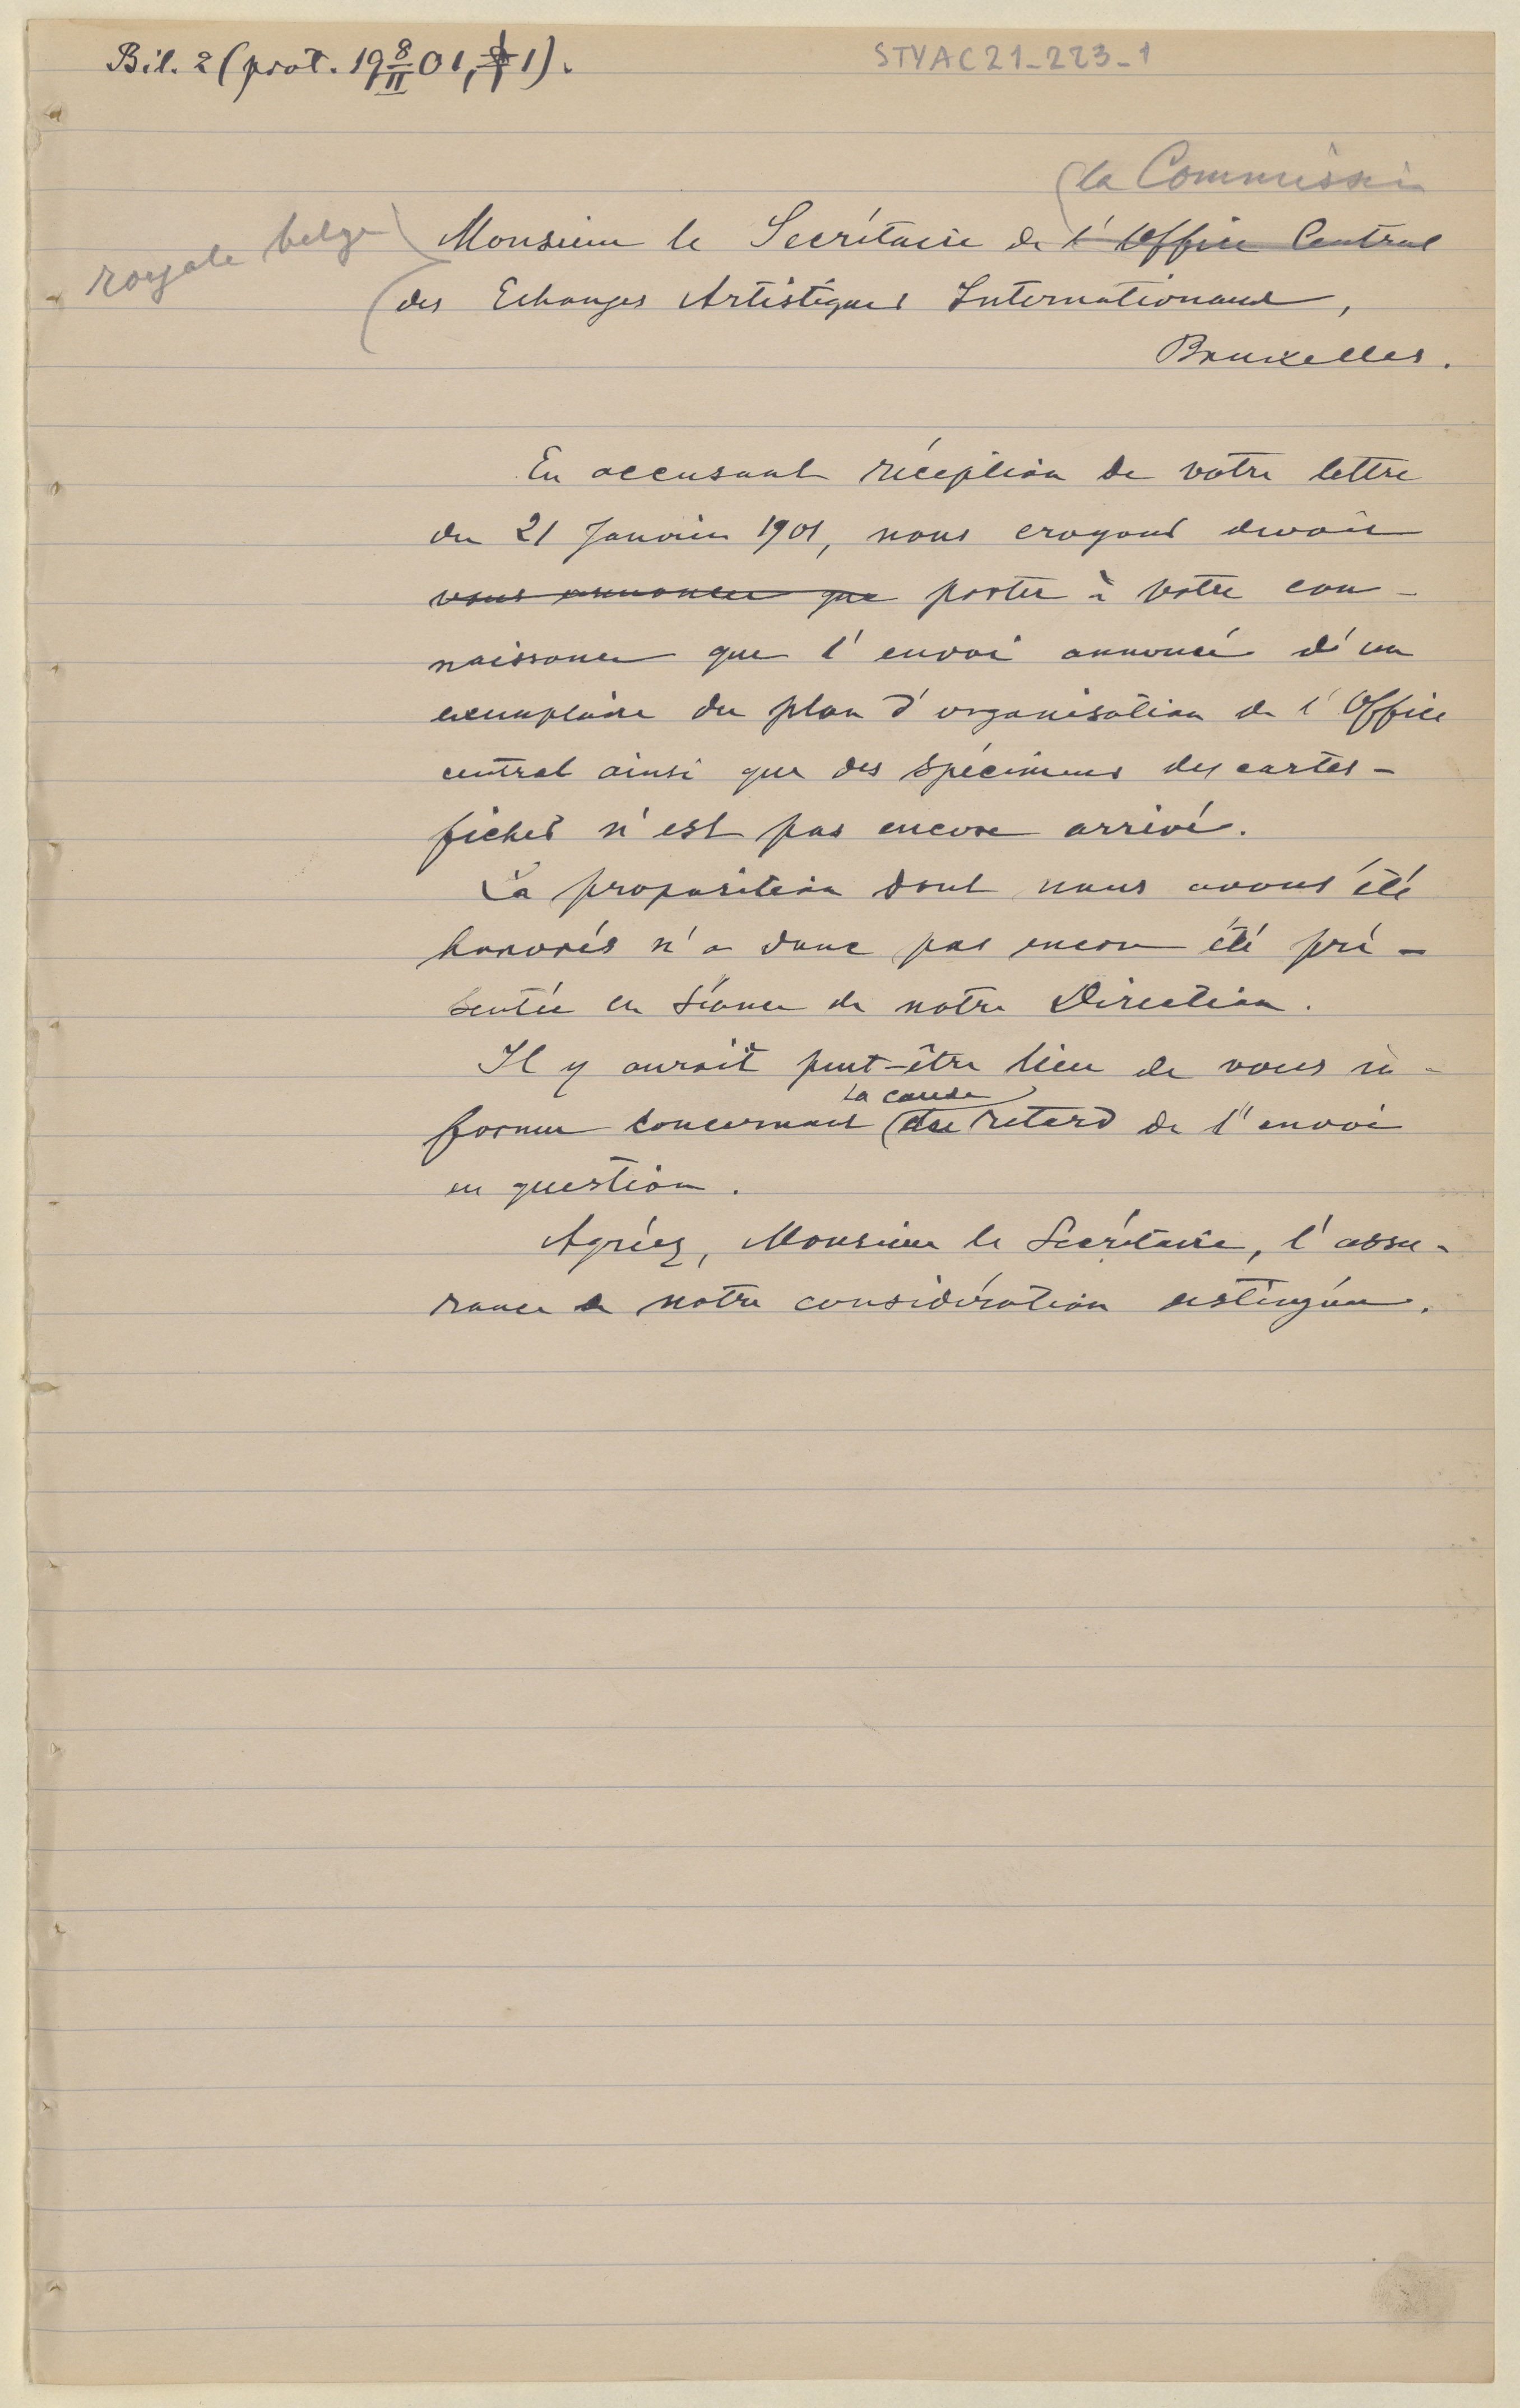 Bil. 2 (prot. 19 8/II 01, § 1).
STYAC21_223_1
la Commission
royale belge
Monsieur le Secrétaire de l'Office Central
des Echanges Artistiques Internationaux,
Bruxelles.
En accusant réception de votre lettre
du 21 Janvier 1901, nous croyons devoir
vous annoncer que porter à votre con-
naissance que l'envoi annoncé d'un
exemplaire du plan d'organisation de l'Office
central ainsi que des spécimens des cartes-
fiches n'est pas encore arrivé.
La proposition dont nous avons été
honorés n'a donc pas encore été pré-
sentée en séance de notre Direction.
Il y aurait peut-être lieu de vous in-
la cause
former concernant du retard de l'envoi
en question.
Agréez, Monsieur le Secrétaire, l'assu-
rance de notre considération distinguée.